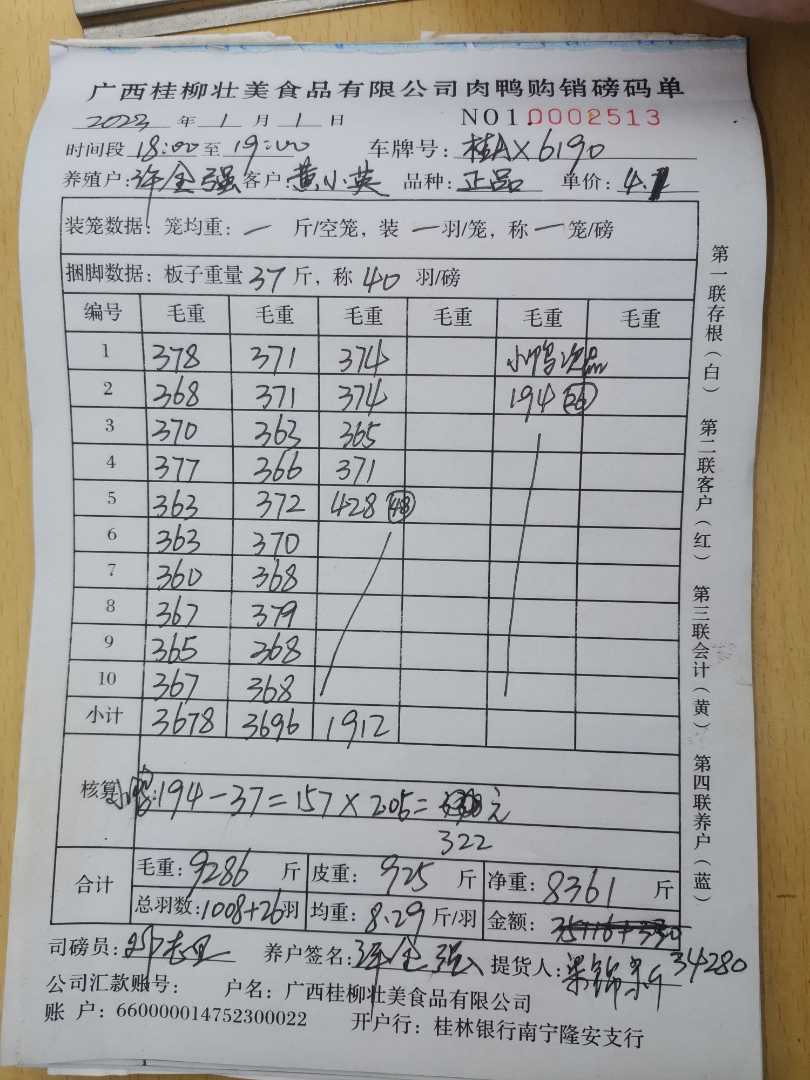 广西桂柳壮美食品有限公司肉鸭购销磅码单
2023 年 1 月 1 日 NO1.0002513
时间段 18:00 至 19:00 车牌号: 桂AX6190
养殖户: 许全强 客户: 黄小英 品种: 正品 单价: 4.1
装笼数据: 笼均重: 一 斤/空笼, 装 一 羽/笼, 称 一 笼/磅
捆脚数据: 板子重量 37 斤, 称 40 羽/磅
编号 毛重 毛重 毛重 毛重 毛重 毛重
1 378 371 374 小鸭次品
2 368 371 374 194 26
3 370 363 365
4 377 366 371
5 363 372 428 48
6 363 370
7 360 368
8 367 379
9 365 368
10 367 368
小计 3678 3696 1912
核算 小鸭: 194-37=157×2.05= 元
322
合计 毛重: 9286 斤 皮重: 925 斤 净重: 8361 斤
总羽数: 1008+26 羽 均重: 8.29 斤/羽 金额: 35116+330
司磅员: 养户签名: 许全强 提货人: 梁锦 34280
公司汇款账号: 户名: 广西桂柳壮美食品有限公司
账 户: 660000014752300022 开户行: 桂林银行南宁隆安支行
第一联存根(白) 第二联客户(红) 第三联会计(黄) 第四联养户(蓝)